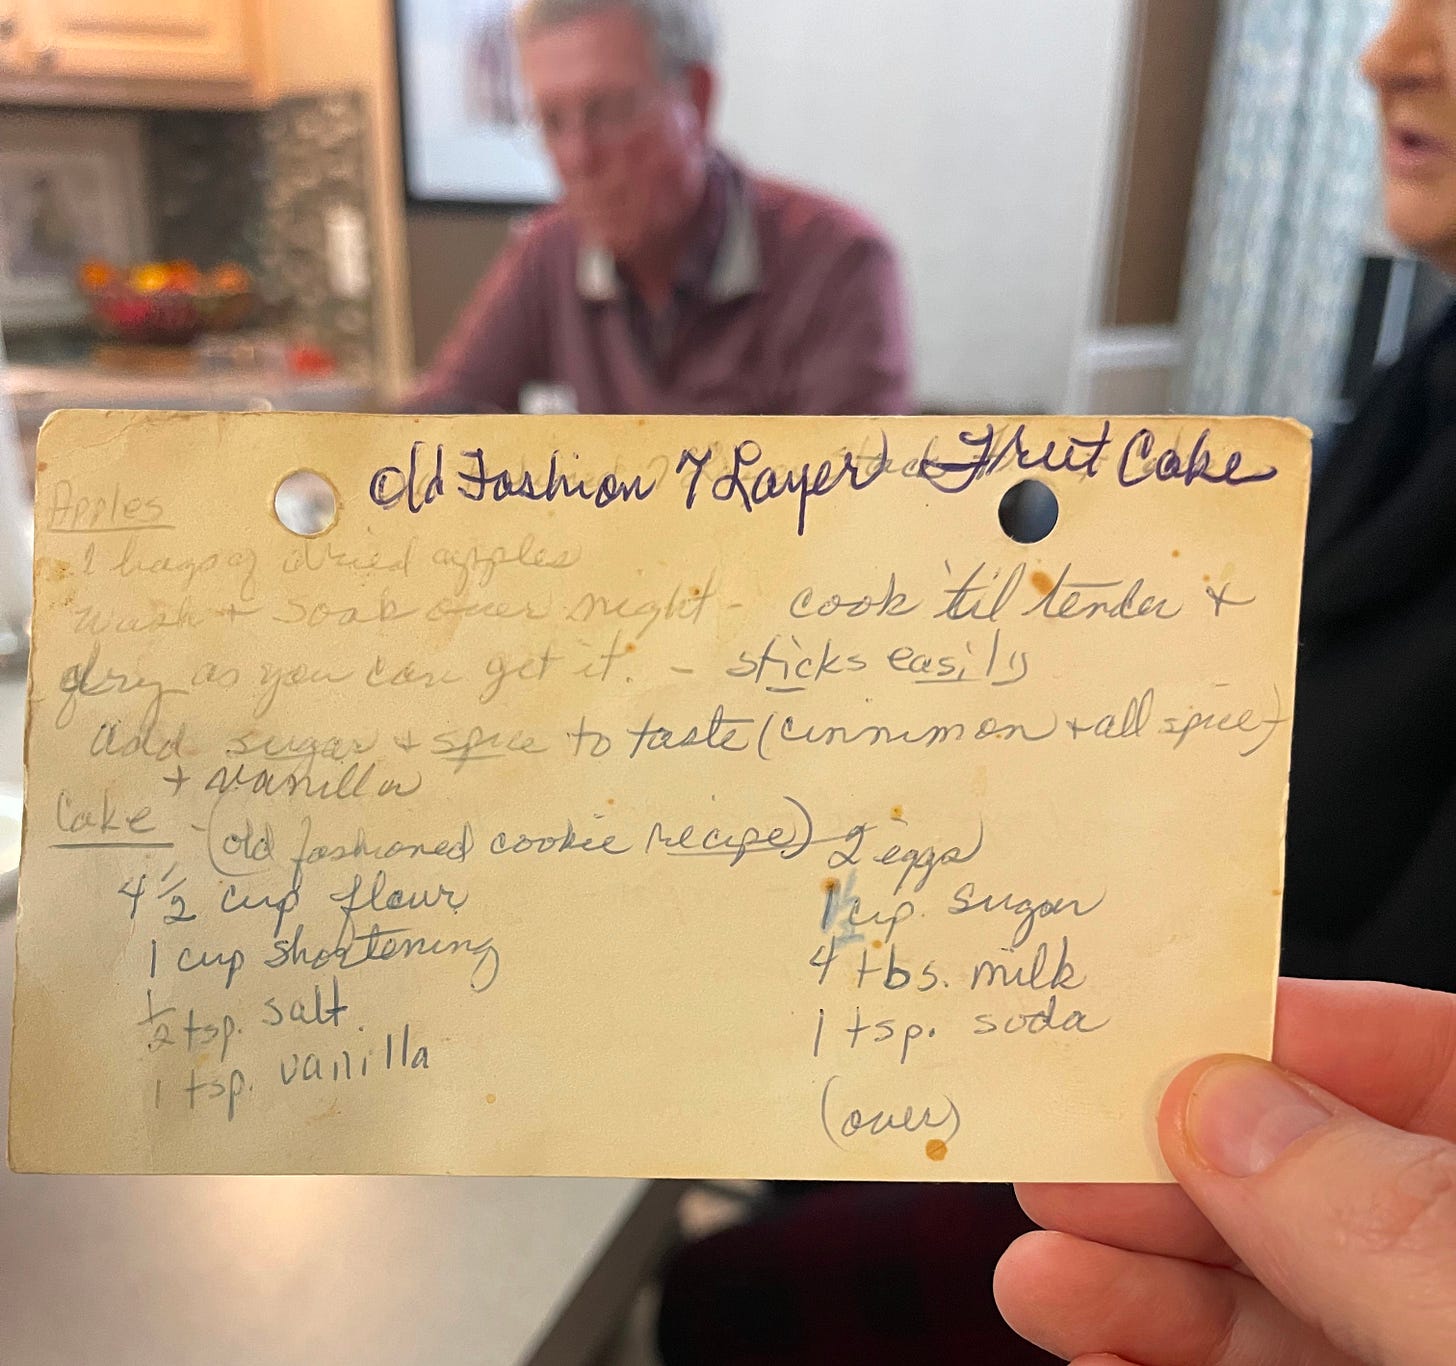 Old Fashion 7 Layer Fruit Cake
Apples
bags of dried apples
Wash + soak over night - cook 'til tender +
dry as you can get it. - sticks easily
add sugar + spice to taste (cinnimon + all spice)
+ vanilla
Cake - (old fashioned cookie recipe)
4 1/2 cup flour
1 cup shortening
1/2 tsp. salt
1 tsp. vanilla
2 eggs
1 1/2 cup sugar
4 tbs. milk
1 tsp. soda
(over)